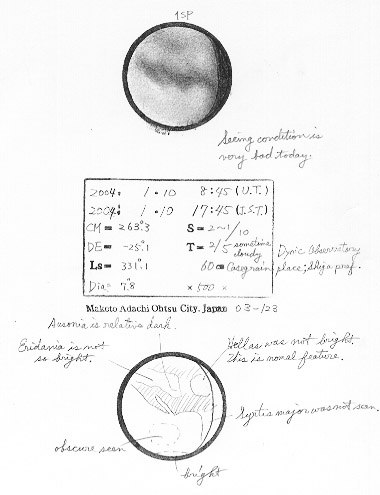 ↑SP
Seeing condition is
very bad today.
2004: 1 . 10 8:45 (U.T.)
2004: 1 . 10 17:45 (J.S.T.)
CM= 263°.3 S= 2~1/10
DE= -25°.1 T= 2/5 sometime
cloudy
Ls= 331°.1 60cm Categrain
Dynic Observatory
place; Shiga pref.
Dia= 7".8 × 500 ×
Makoto Adachi Ohtsu City. Japan 03-123
Ausonia is relative dark.
Eridania is not
so bright.
Hellas was not bright.
This is nonal feature.
Syrtis major was not seen.
obscure seen
bright